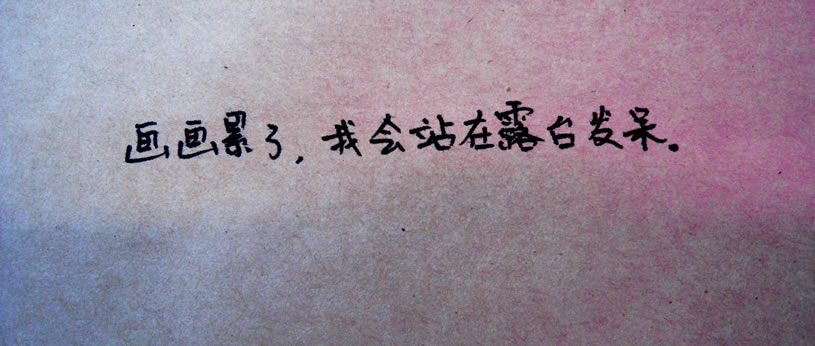 画画累了，我会站在露台发呆。